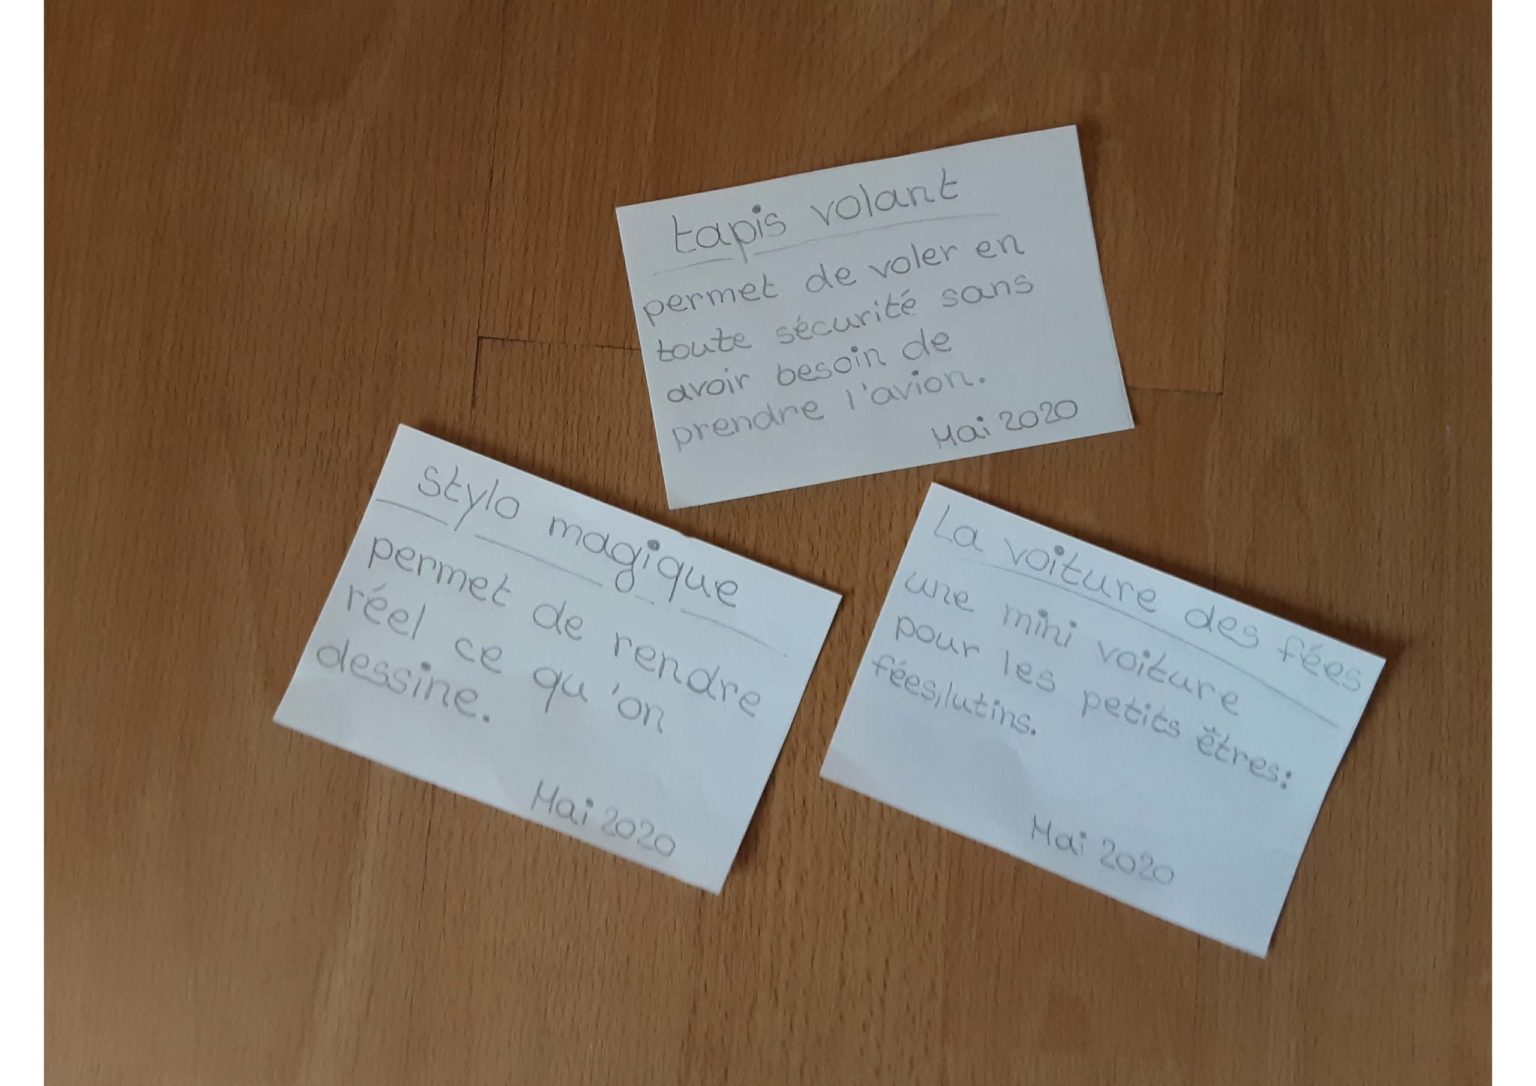 tapis volant
permet de voler en
toute sécurité sans
avoir besoin de
prendre l'avion.
Mai 2020
stylo magique
permet de rendre
réel ce qu'on
dessine.
Mai 2020
La voiture des fées
une mini voiture
pour les petits êtres:
fées, lutins.
Mai 2020